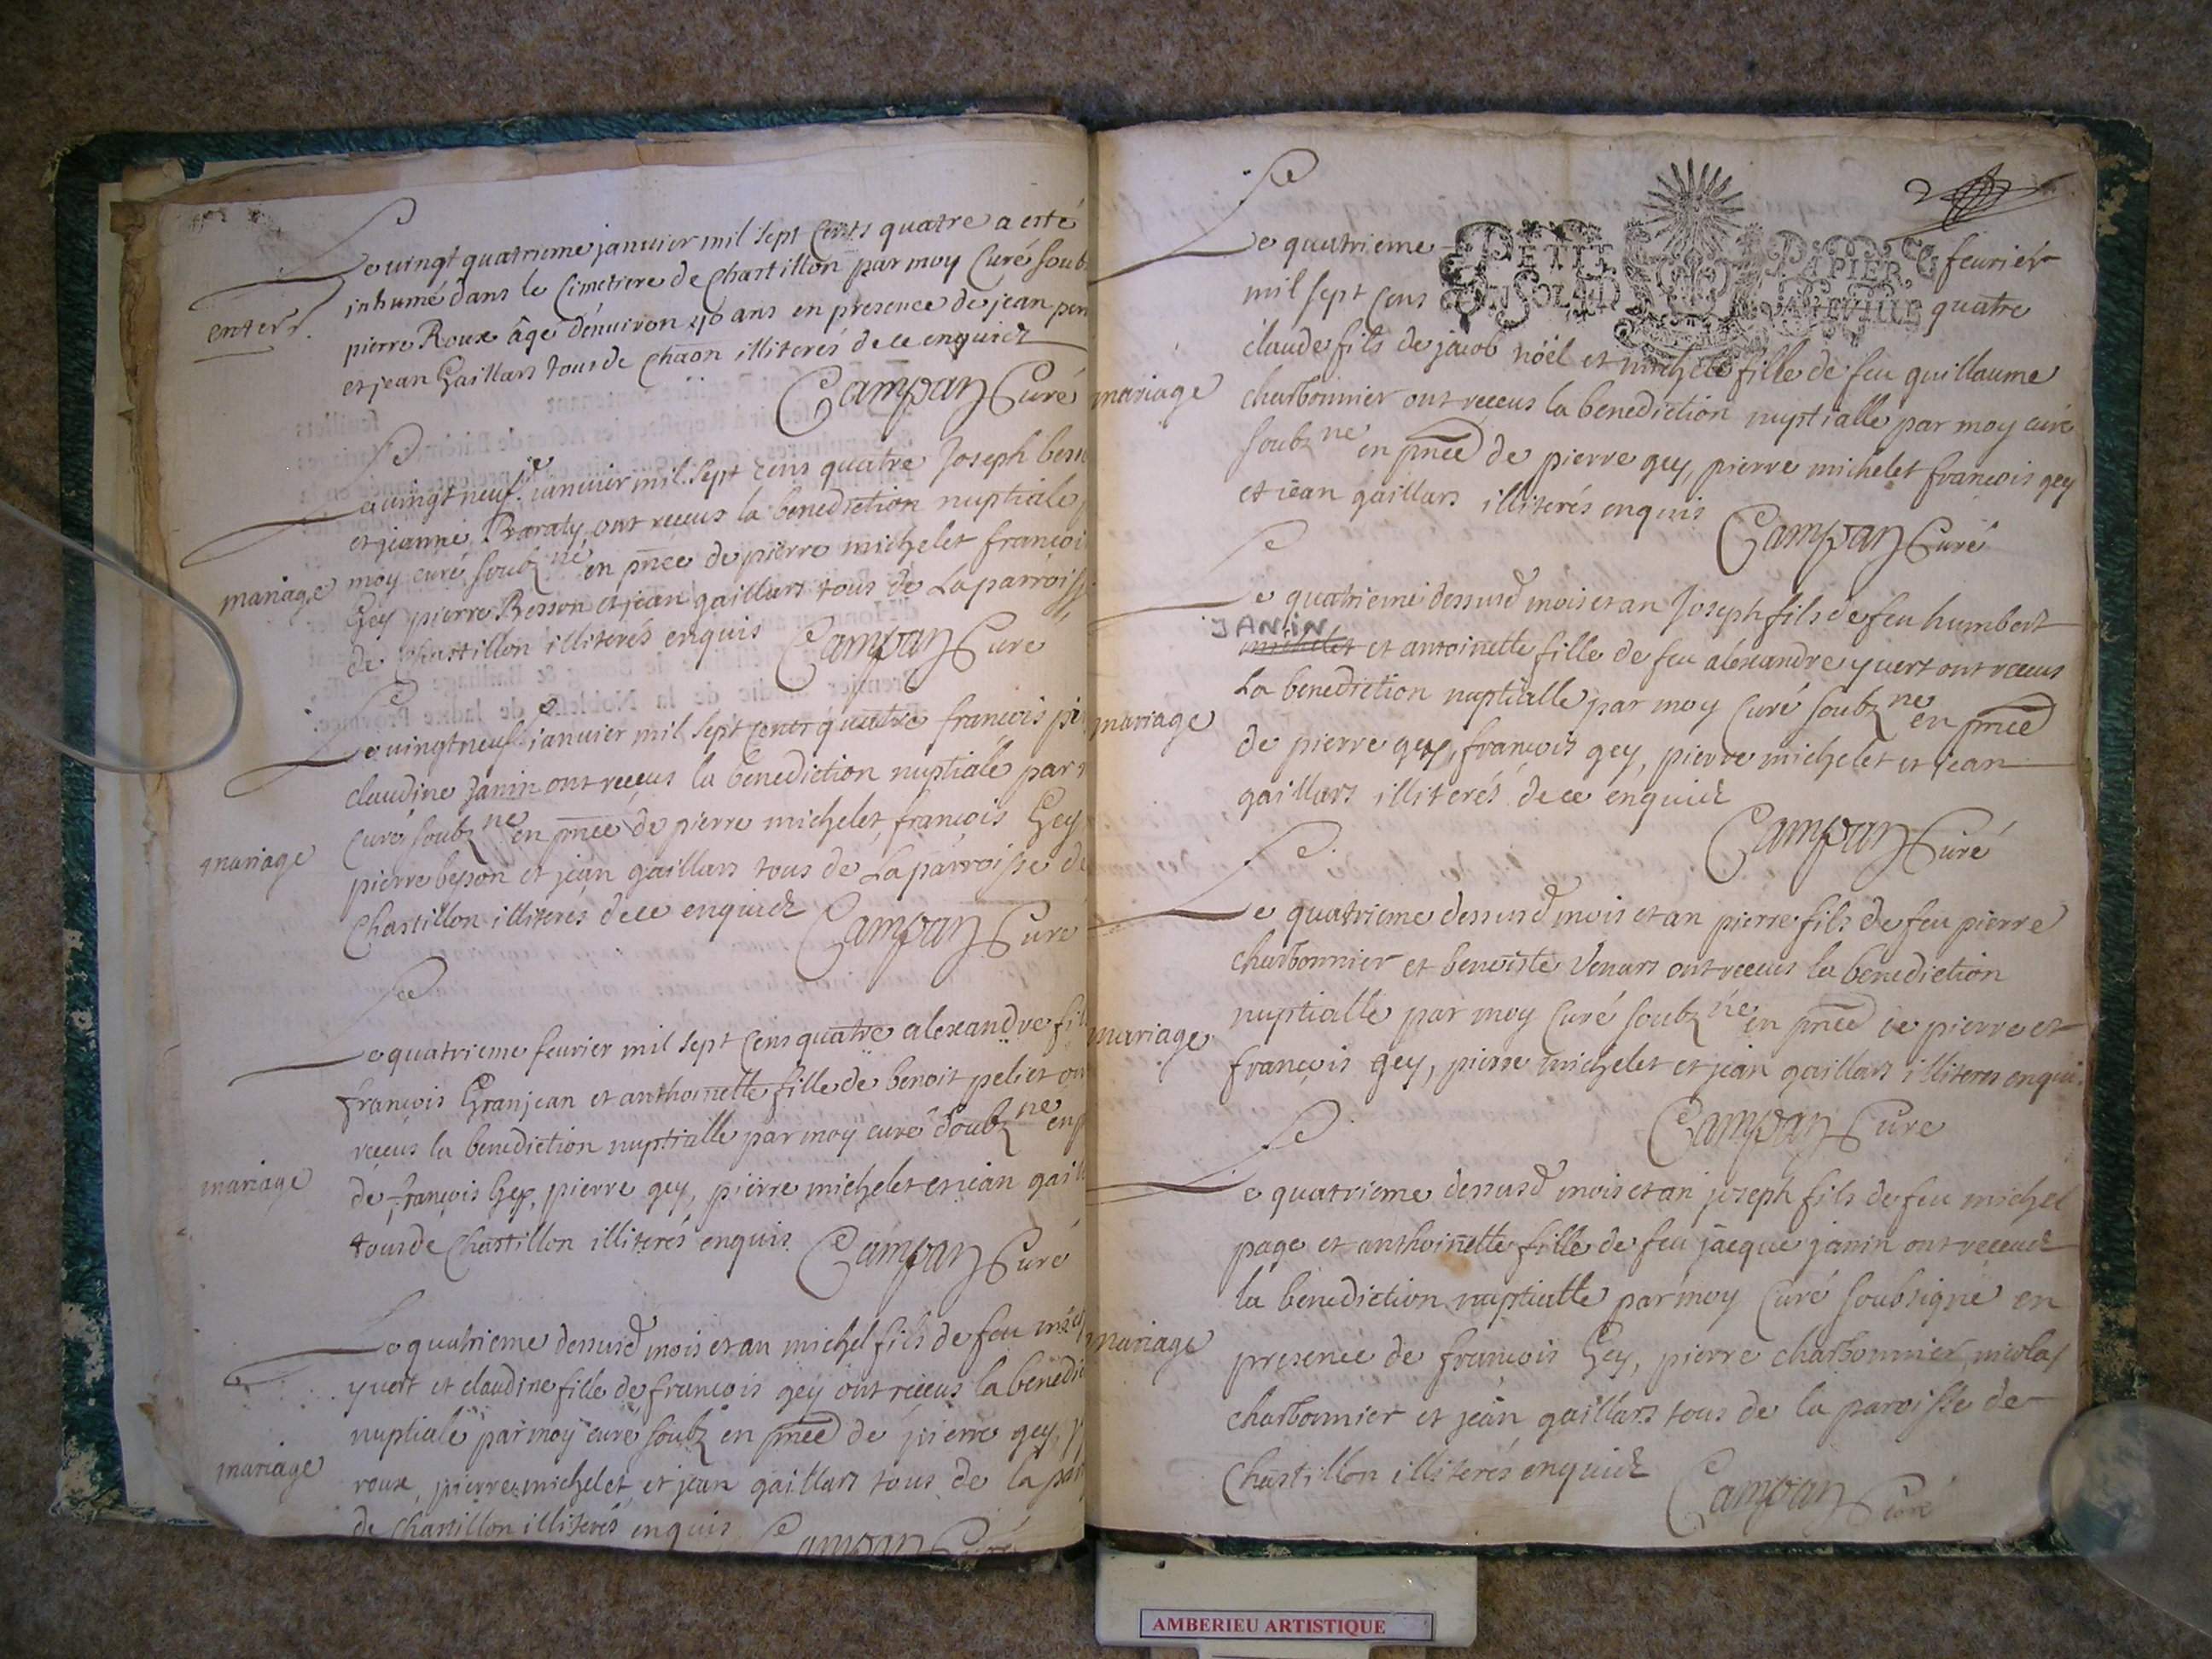 Le vingt quatrieme januier mil sept cents quatre a esté
inhumé dans le Cimetiere de Chastillon par moy Curé soub
enterr.
pierre Roux âge d'enuiron 46 ans en presence de jean
et jean Gaillars tous de chaôn illiterés de ce enquict
Campan Curé
Le vingt neuf.e januier mil sept cens quatre Joseph
et jeanne Baraty, ont receus la benediction nuptiale
mariage
moy curé soubz ne en pnce de pierre michelet francoi
Gey pierre Besson et jean gaillars tous de La parroiss
de Chastillon illiterés enquis Campan Curé
Le vingt neuf.e januier mil sept cents quatre francois
claudine Janin ont receus la benediction nuptiale par
Curé soubz ne en pnce de pierre michelet, francois Gey
mariage
pierre besson et jean gaillars tous de La parroisse de
Chastillon illiterés de ce enquict Campan Curé
Le quatrieme feurier mil sept cens quatre alexandre fil
francois Granjean et anthoinette fille de benoit peliet
receus la benediction nuptialle par moy curé soubz ne en
mariage
de francois Gey, pierre gey, pierre michelet et jean gail
tous de Chastillon illiterés enquis Campan Curé
Le quatrieme dessusd mois et an michel fils de feu
yuert et claudine fille de francois gey ont receus la benedic
nuptiale par moy curé soubz en pnce de pierre gey,
mariage
roux, pierre michelet et jean gaillars tous de la par
de Chastillon illiterés enquis Campan Curé
2
Le quatrieme feurier
PETIT PAPIER
mil sept cens quatre
claude fils de jacob noël et michele fille de feu guillaume
mariage
charbonnier ont receus la benediction nuptialle par moy curé
soubz ne en pnce de pierre gey, pierre michelet francois gey
et jean gaillars illiterés enquis
Campan Curé
Le quatrieme dessusd mois et an Joseph fils de feu humbert
JANIN
michelet et antoinette fille de feu alexandre yuert ont receus
La benediction nuptialle par moy Curé soubz ne en pnce
mariage
de pierre gey, francois gey, pierre michelet et jean
gaillars illiterés de ce enquict
Campan Curé
Le quatrieme dessusd mois et an pierre fils de feu pierre
charbonnier et benoiste Venars ont receus la benediction
nuptialle par moy Curé soubz ne en pnce de pierre et
mariage
françois gey, pierre michelet et jean gaillars illiteres enqui
Campan Curé
Le quatrieme dessusd mois et an joseph fils de feu michel
page et anthoinette fille de feu jacque janin ont receuct
la benediction nuptialle par moy Curé soubsigné en
mariage
presence de francois Gey, pierre charbonnier nicolas
charbonnier et jean gaillars tous de la paroisse de
Chastillon illiterés enquict
Campan Curé
AMBERIEU ARTISTIQUE